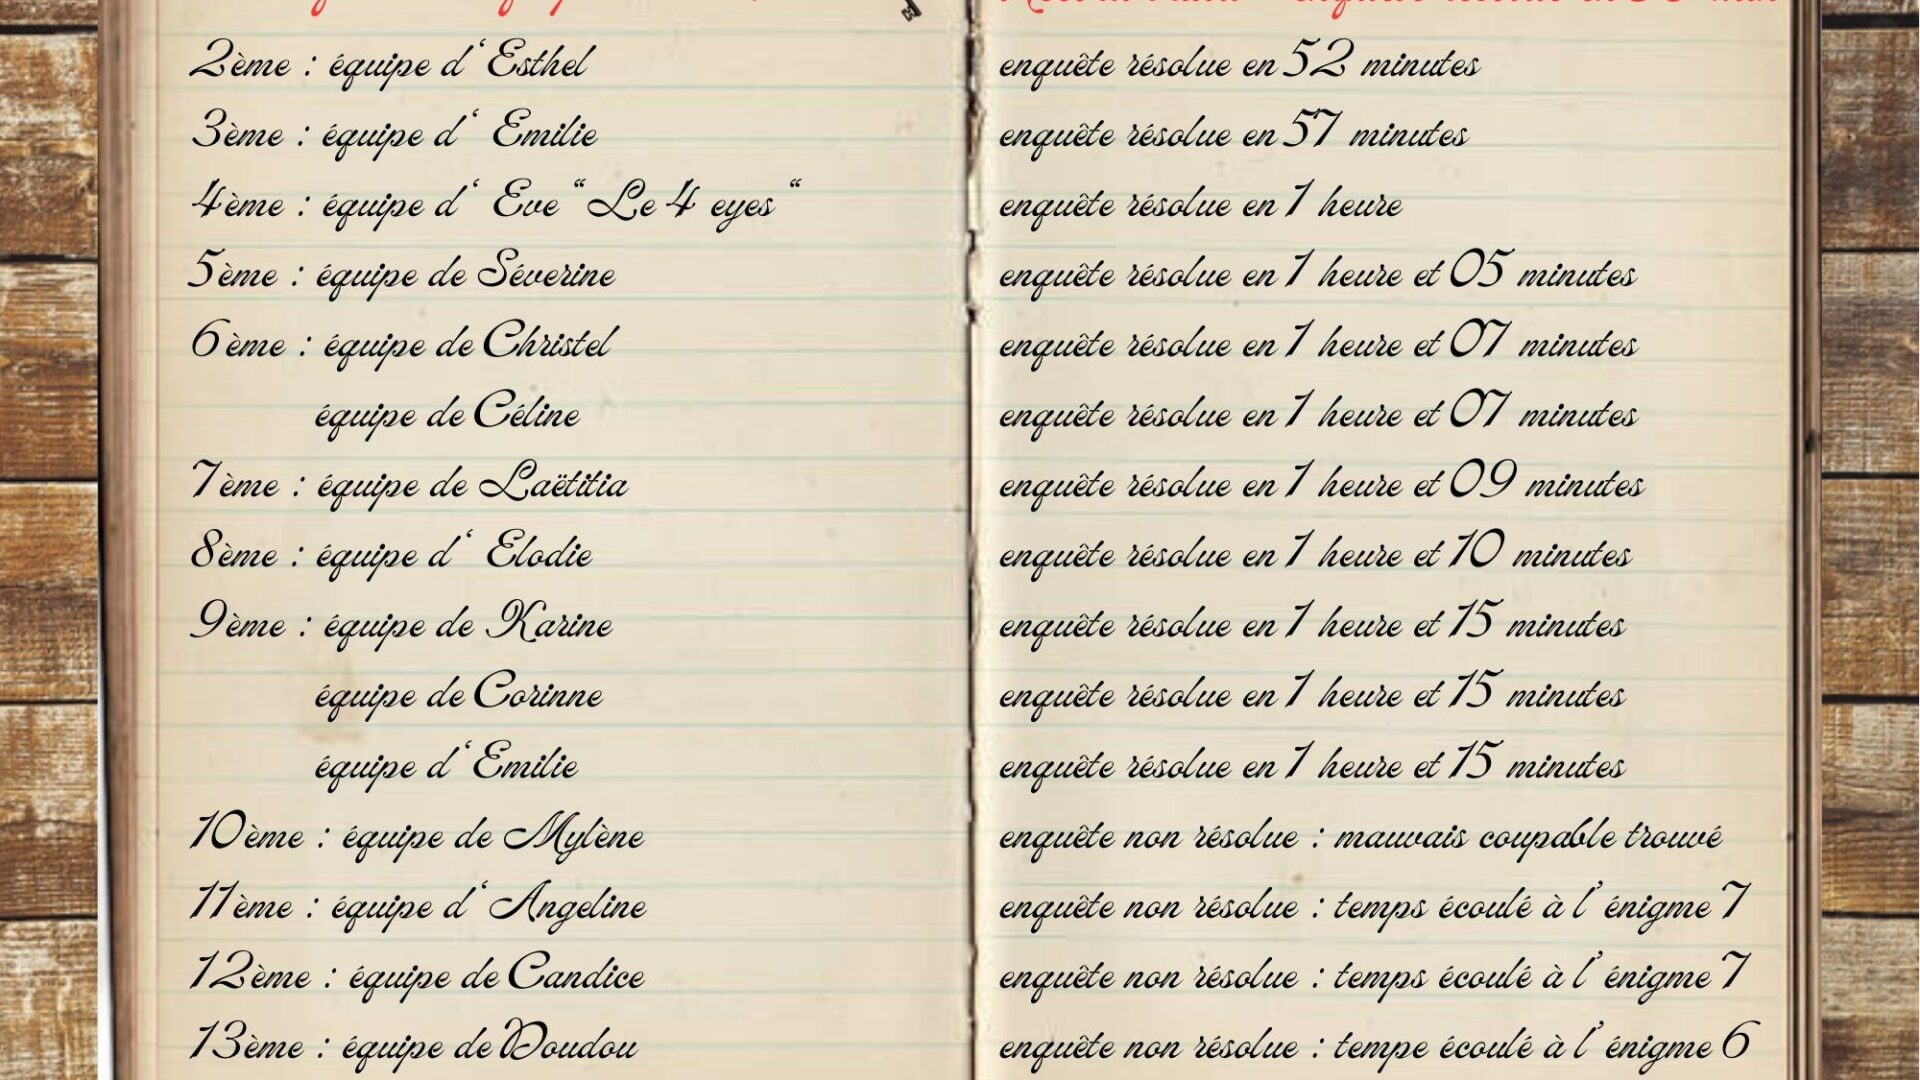 2ème : équipe d' Esthel enquête résolue en 52 minutes
3ème : équipe d' Emilie enquête résolue en 57 minutes
4ème : équipe d' Eve "Le 4 eyes" enquête résolue en 1 heure
5ème : équipe de Séverine enquête résolue en 1 heure et 05 minutes
6ème : équipe de Christel enquête résolue en 1 heure et 07 minutes
équipe de Céline enquête résolue en 1 heure et 07 minutes
7ème : équipe de Laëtitia enquête résolue en 1 heure et 09 minutes
8ème : équipe d' Elodie enquête résolue en 1 heure et 10 minutes
9ème : équipe de Karine enquête résolue en 1 heure et 15 minutes
équipe de Corinne enquête résolue en 1 heure et 15 minutes
équipe d' Emilie enquête résolue en 1 heure et 15 minutes
10ème : équipe de Mylène enquête non résolue : mauvais coupable trouvé
11ème : équipe d' Angeline enquête non résolue : temps écoulé à l' énigme 7
12ème : équipe de Candice enquête non résolue : temps écoulé à l' énigme 7
13ème : équipe de Doudou enquête non résolue : tempe écoulé à l' énigme 6